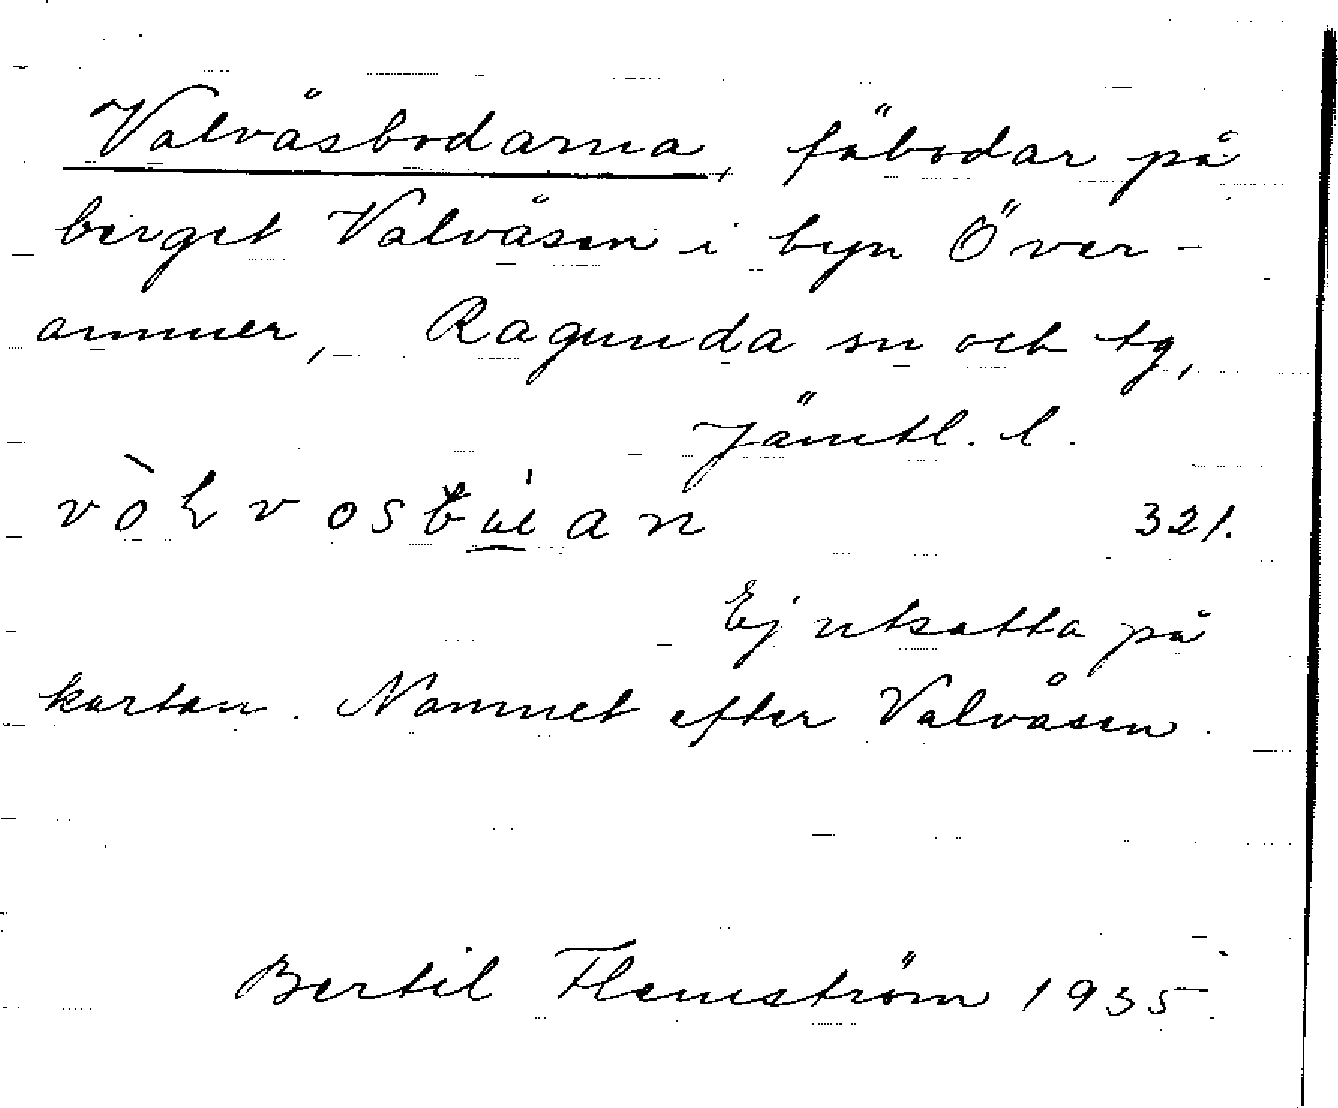 Valvåsbodarna, fäbodar på
berget Valvåsen i byn Över-
ammer, Ragunda sn och tg,
Jämtl. l.
321.
Ej utsatta på
kartan. Namnet efter Valvåsen.
Bertil Flemström 1935